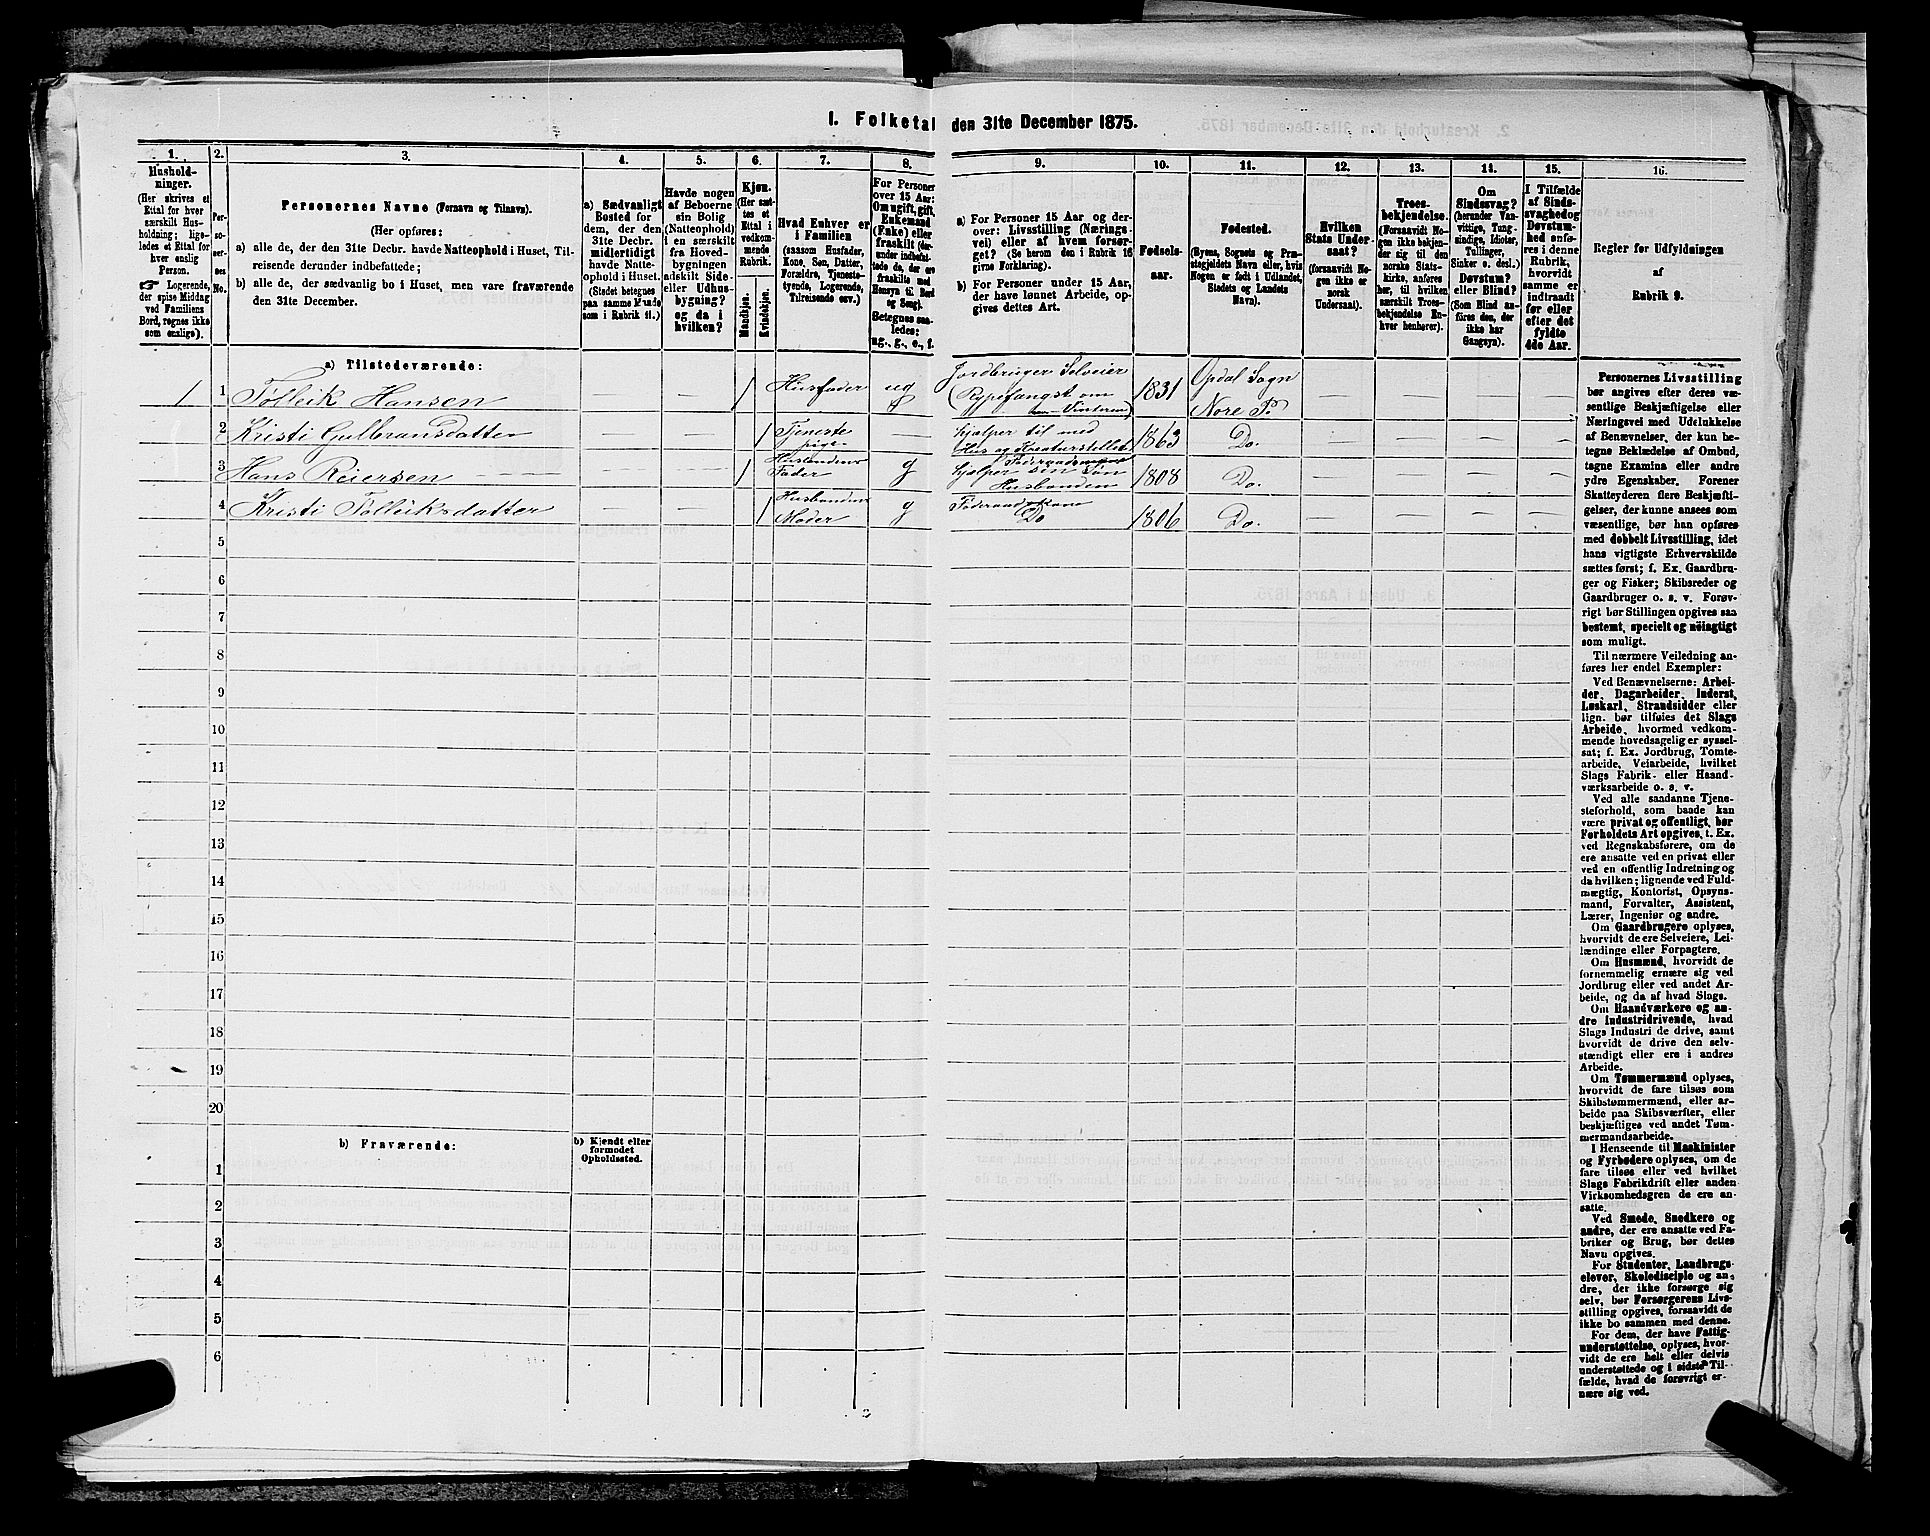 I. Folketal den 31te December 1875.
1.
Hushold-
ninger.
(Her skrives et
Ettal for hver
særskilt Hus-
holdning; lige-
ledes et Ettal for
hver enslig
Person.
☞ Logerende,
der spise Middag
ved Familiens
Bord, regnes ikke
som enslige).
2.
Per-
so-
ner-
nes
No.
3.
Personernes Navne (Fornavn og Tilnavn).
(Her opføres:
a) alle de, der den 31te Decbr. havde Natteophold i Huset, Til-
reisende derunder indbefattede;
b) alle de, der sædvanlig bo i Huset, men vare fraværende
den 31te December.
4.
a) Sædvanligt
Bosted for
dem, der den
31te Decbr.
midlertidigt
havde Natte-
ophold i Huset.
(Stedet betegnes
paa samme Maade
som i Rubrik 11.)
5.
Havde nogen
af Beboerne
sin Bolig
(Natteophold)
i en særskilt
fra Hoved-
bygningen
adskilt Side-
eller Udhus-
bygning?
og da i
hvilken?
6.
Kjøn.
(Her sæt-
tes et
Ettal i
vedkom-
mende
Rubrik.
Mandkjøn.
Kvindekjøn.
7.
Hvad Enhver er
i Familien
(saasom Husfader,
Kone, Søn, Datter,
Forældre, Tjeneste-
tyende, Logerende,
Tilreisende osv.)
8.
For Personer
over 15 Aar:
Om ugift, gift,
Enkemand
(Enke) eller
fraskilt (der-
under indbefat-
tede de, der ere
fraskilte med
Hensyn til Bord
og Seng).
Betegnes saa-
ledes:
ug., g., e., f.
9.
a) For Personer 15 Aar og der-
over: Livsstilling (Nærings-
vei) eller af hvem forsør-
get? (Se herom den i Rubrik 16
givne Forklaring).
b) For Personer under 15 Aar,
der have lønnet Arbeide, op-
gives dettes Art.
10.
Fødsels-
aar.
11.
Fødested.
(Byens, Sognets og Præ-
stegjeldets Navn eller, hvis
Nogen er født i Udlandet,
Stedets og Landets
Navn.)
12.
Hvilken
Stats Under-
saat?
(forsaavidt No-
gen ikke er
norsk
Undersaat).
13.
Troes-
bekjendelse.
(Forsaavidt No-
gen ikke bekjen-
der sig til den
norske Stats-
kirke, anføres
her, til hvilken
særskilt Troes-
bekjendelse En-
hver henhører).
14.
Om
Sindssvag?
(herunder Van-
vittige, Tung-
sindige, Idioter,
Tullinger,
Sinker o. desl.)
Døvstum?
eller Blind?
(Som Blind an-
føres den, der
ikke har
Gangsyn).
15.
I Tilfælde
af Sinds-
svaghed og
Døvstum-
hed anfø-
res i denne
Rubrik,
hvorvidt
samme er
indtraadt
før eller
efter det
fyldte
4de Aar.
16.
Regler for Udfyldningen
af
Rubrik 9.
a) Tilstedeværende:
1 1 Tolleik Hansen 1 Husfader ug Jordbruger Selveier (Rypefangst om Vinteren) 1831 Opdal Sogn Nore P. — — — —
2 Kristi Gulbransdatter — — 1 Tjeneste pige — hjælper til med Hus og Kreaturstellet 1863 Do. — — — —
3 Hans Reiersen — — 1 Husbondens Fader g Føderaadsmand hjælper sin Søn Husbonden 1808 Do. — — — —
4 Kristi Tolleiksdatter — — 1 Husbondens Moder g Føderaadskone Do 1806 Do. — — — —
5
6
7
8
9
10
11
12
13
14
15
16
17
18
19
20
b) Fraværende:
b) Kjendt eller
formodet
Opholdssted.
1
2
3
4
5
6
Personernes Livsstilling
bør angives efter deres væ-
sentlige Beskjæftigelse eller
Næringsvei med Udelukkelse
af Benævnelser, der kun be-
tegne Beklædelse af Ombud,
tagne Examina eller andre
ydre Egenskaber. Forener
Skatteyderen flere Beskjæfti-
gelser, der kunne ansees som
væsentlige, bør han opføres
med dobbelt Livsstilling, idet
hans vigtigste Erhvervskilde
sættes først; f. Ex. Gaardbru-
ger og Fisker; Skibsreder og
Gaardbruger o. s. v. Forøv-
rigt bør Stillingen opgives saa
bestemt, specielt og nöiagtigt
som muligt.
Til nærmere Veiledning an-
føres her endel Exempler:
Ved Benævnelserne: Arbei-
der, Dagarbeider, Inderst,
Løskarl, Strandsidder eller
lign. bør tilføies det Slags
Arbeide, hvormed vedkom-
mende hovedsagelig er syssel-
sat; f. Ex. Jordbrug, Tomte-
arbeide, Veiarbeide, hvilket
Slags Fabrik- eller Haand-
værksarbeide o. s. v.
Ved alle saadanne Tjene-
steforhold, som baade kan
være privat og offentligt, bør
Forholdets Art opgives, t. Ex.
ved Regnskabsførere, om de
ere ansatte ved en privat eller
ved en offentlig Indretning og
da hvilken; lignende ved Fuld-
mægtig, Kontorist, Opsyns-
mand, Forvalter, Assistent,
Lærer, Ingeniør og andre.
Om Gaardbrugere oplyses,
hvorvidt de ere Selveiere, Lei-
lændinge eller Forpagtere.
Om Husmænd, hvorvidt de
fornemmelig ernære sig ved
Jordbrug eller ved andet Ar-
beide, og da af hvad Slags.
Om Haandværkere og an-
dre Industridrivende, hvad
Slags Industri de drive, samt
hvorvidt de drive den selv-
stændigt eller ere i andres
Arbeide.
Om Tømmermænd oplyses,
hvorvidt de fare tilsøs som
Skibstømmermænd, eller ar-
beide paa Skibsværfter, eller
beskjæftiges ved andet Tøm-
mermandsarbeide.
I Henseende til Maskinister
og Fyrbødere oplyses, om de
fare tilsøs eller ved hvilket
Slags Fabrikdrift eller anden
Virksomhedsgren de ere an-
satte.
Ved Smede, Snedkere og
andre, der ere ansatte ved Fa-
briker og Brug, bør dettes
Navn opgives.
For Studenter, Landbrugs-
elever, Skoledisciple og an-
dre, der ikke forsørge sig
selv, bør Forsørgerens Livs-
stilling opgives, forsaavidt de
ikke bo sammen med denne.
For dem, der have Fattig-
understøttelse, oplyses, hvor-
vidt de ere helt eller delvis
understøttede og i sidste Til-
fælde, hvad de forøvrigt er-
nære sig ved.